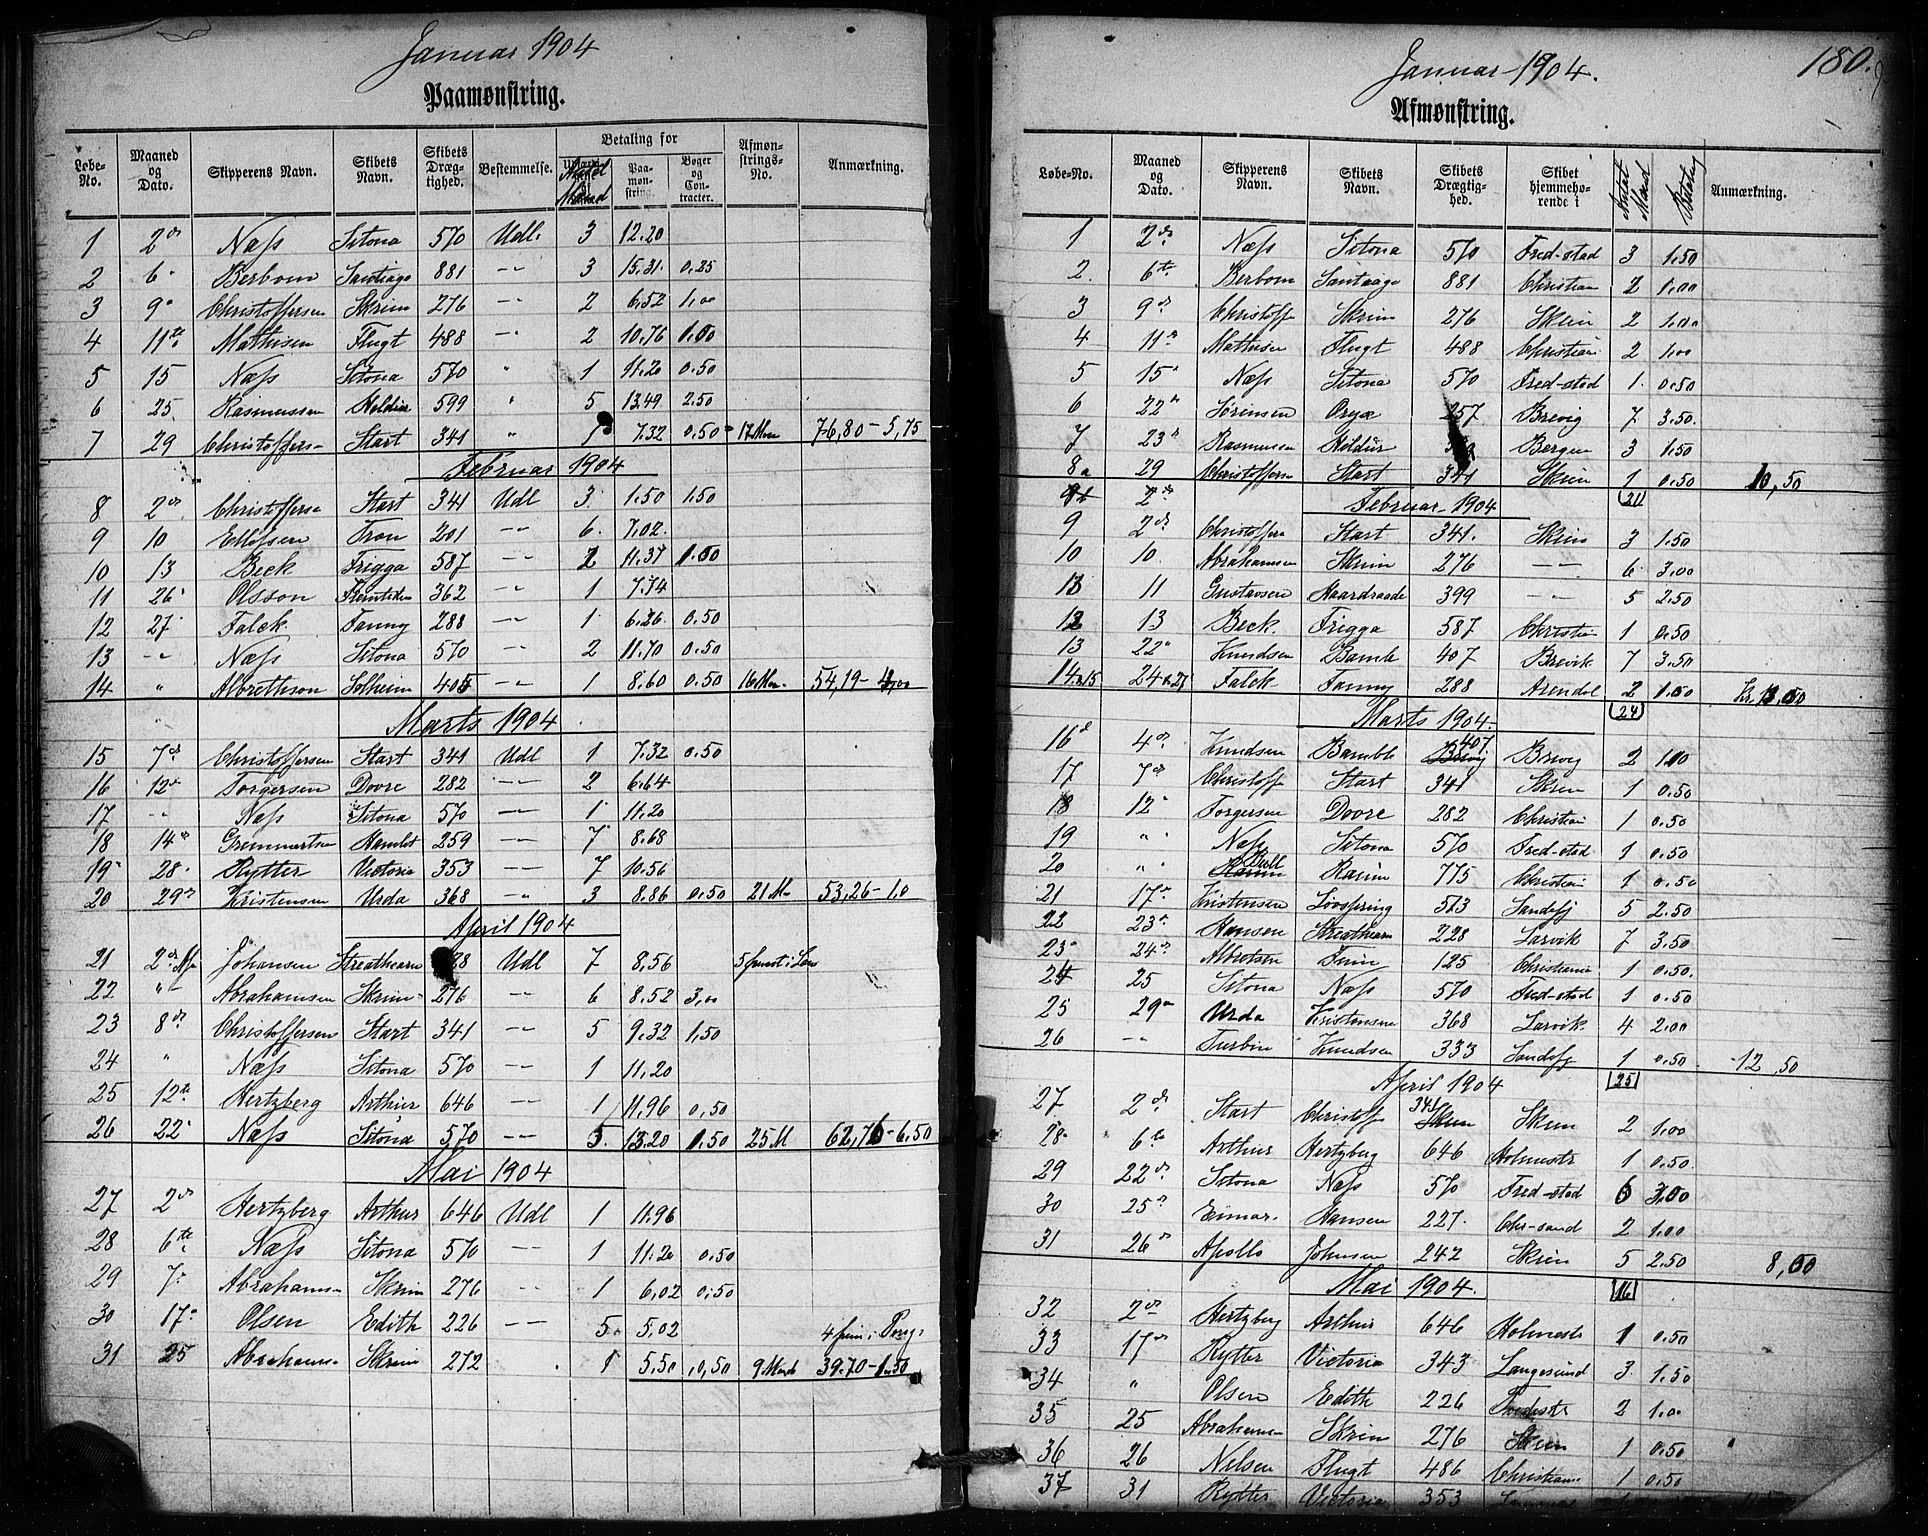 Januar 1904
Paamønstring.
Løbe-No. Maaned og Dato. Skipperens Navn. Skibets Navn. Skibets Drægtighed. Bestemmelse. Antal Mand Betaling for Paamønstring. Bøger og Contracter. Afmønstrings-No. Anmærkning.
1 2den Næss Sitona 570 Udl. 3 12.20
2 6 Berbom Santiago 881 -"- 3 15.31 0.25
3 9 Christoffersen Skrim 276 -"- 2 6.52 1.00
4 11te Mathisen Flugt 488 -"- 2 10.76 1.00
5 15 Næss Sitona 570 " 1 11.20 0.50
6 25 Rasmussen Heldur 599 " 5 13.49 2.50
7 29 Christoffers- Start 341 " 1 7.32 0.50 17 Mn 76,80 - 5,75
Februar 1904
8 2den Christoffersn Start 341 Udl 3 1.50 1.50
9 10 Ellefsen Tron 201 -"- 6 7.02
10 13 Beck Frigga 587 -"- 2 11.37 1.00
11 26 Olsson 362 -"- 1 7.74
12 27 Falck Fanny 288 -"- 1 6.26 0.50
13 -"- Næss Sitona 570 -"- 2 11.70 0.50
14 " Albrethson Solheim 405 -"- 1 8.60 0.50 16 Mn 54,19 - 4,00
Marts 1904
15 7de Christoffersen Start 341 Udl 1 7.32 0.50
16 12te Torgersen Dovre 282 -"- 2 6.64
17 -"- Næss Sitona 570 -"- 1 11.20
18 14de Hamlet 259 -"- 7 8.68
19 28 Rytter Victoria 353 -"- 7 10.56
20 29de Kristensen Urda 368 -"- 3 8.86 0.50 21 M 53,26 - 1.0
April 1904
21 2den Johansen Streathearn 228 Udl 7 8.56
22 " Abrahamsen Skrim 276 -"- 6 8.52 3,00
23 8de Christoffersens Start 341 -"- 5 9.32 1,50
24 " Næss Sitona 570 -"- 1 11,20
25 12te Hertzberg Arthur 646 -"- 1 11,96 0,50
26 22 Næss Sitona 570 -"- 5 13.20 1.50 25 M 62,76 - 6.50
Mai 1904
27 2den Hertzberg Arthur 646 Udl 1 11.96
28 6te Næss Sitona 570 -"- 1 11.20 0.50
29 7 Abrahams- Skrim 276 -"- 1 6,02 0.50
30 17 Olsen Edith 226 -"- 5 5,02
31 25 Abrahams- Skrim 272 1 5.50 0,50 9 Mand 39.70 - 1.50
Januar 1904.
180.
Afmønstring.
Løbe-No. Maaned og Dato. Skipperens Navn. Skibets Navn. Skibets Drægtighed. Skibet hjemmehørende i Antal Mand Betaling Anmærkning.
1 2den Næss Sitona 570 Fred-stad 3 1.50
2 6te Berbom Santiago 881 Christian 2 1.00
3 9de Christoff Skrim 276 Skien 2 1.00
4 11te Mathisen Flugt 488 Christiani 2 1.00
5 15 Næss Sitona 570 Fred-stad 1 0.50
6 22 Sørensen Oryx 257 Brevig 7 3.50
7 23 Rasmussen Heldur Bergen 3 1.50
8 29 Christoffersn Start 341 Skien 1 0.50 10,50
2de Februar 1904 21
9 2den Christoffers Start 341. Skien 3 1.50
10 10. Abrahamsen Skrim 276 -"- 6 3.00
11 11 Gustavsen Haardraade 399 -"- 5 2.50
12 13 Beck. Frigga 587 Christian 1 0.50
13 22 Knudsen Bamb 407 Brevik 7 3.50
14 & 15 24 & 27 Falck Fanny 288 Arendal 2 1.00 Kr. 12,00
Marts 1904. 24
16 4de Knudsen Bamble 407. Brevig 2 1.00
17 7de Christoff Start 341 Skien 1 0.50
18 12 Torgersen Dovre 282 Christian 1 0.50
19 " Næss Sitona 570 Fred-stad 1 0.50
20 " Bull Ranim 775 Christian 1 0.50
21 17de Kristensen Løvspring 513 Sandefj 5 2.50
22 23de Hansen Streathearn 228 Larvik 7 3.50
23 24de Albretsen 125 Christiania 1 0.50.
24 25 Sitona Næss 570 Fred-stad 1 0.50
25 29de Urda Kristensen 368 Larvik 4 2.00
26 -"- Turbin Knudsen 333 Sandefj 1 0.50 12,50
April 1904 25
27 2den Start Christoff 341 Skien 2 1.00
28 6te Arthur Hertzberg 646 Holmestr 1 0.50
29 22de Sitona Næss 570 Fred-stad 6 3.00
30 25de Einar. Hansen 227. Chr-sand 2 1.00
31 26de Apollo Johnsen 242 Skien 5 2.50 8,00
Mai 1904. 16
32 2den Hertzberg Arthur 646 Holmestr 1 0.50
33 17de Rytter Victoria 343 Langesund 3 1.50
34 " Olsen Edith 226 Tvedestr 2 1.00
35 25 Abrahamsen Skrim 276 Skien 1 0.50
36 26 Nilsen Flugt 486 Christiania 1 0.50
37 31 Rytter Victoria 353